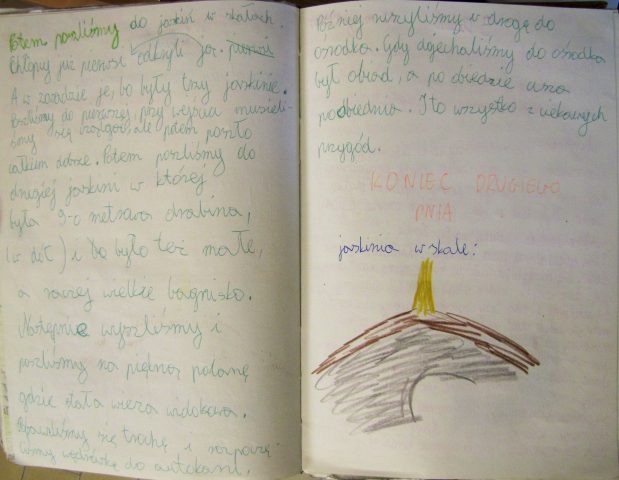 Potem poszliśmy do jaskiń w skałach.
Chłopcy już pierwsi odkryli
A w zasadzie je, bo były trzy jaskinie.
Poszliśmy do pierwszej, przy wejściu musieli-
śmy się ale potem poszło
całkiem dobrze. Potem poszliśmy do
drugiej jaskini w której
była 9-o metrowa drabina,
(w dół) i bo było też małe,
a raczej wielkie bagnisko.
Następnie wyszliśmy i
poszliśmy na piękną polanę
gdzie stała wieża widokowa.
się trochę i rozpoczę-
liśmy wędrówkę do autokaru.
Później ruszyliśmy w drogę do
ośrodka. Gdy dojechaliśmy do ośrodka
był obiad, a po obiedzie
poobiednia. I to wszystko z ciekawych
przygód.
KONIEC DRUGIEGO
DNIA
jaskinia w skale: